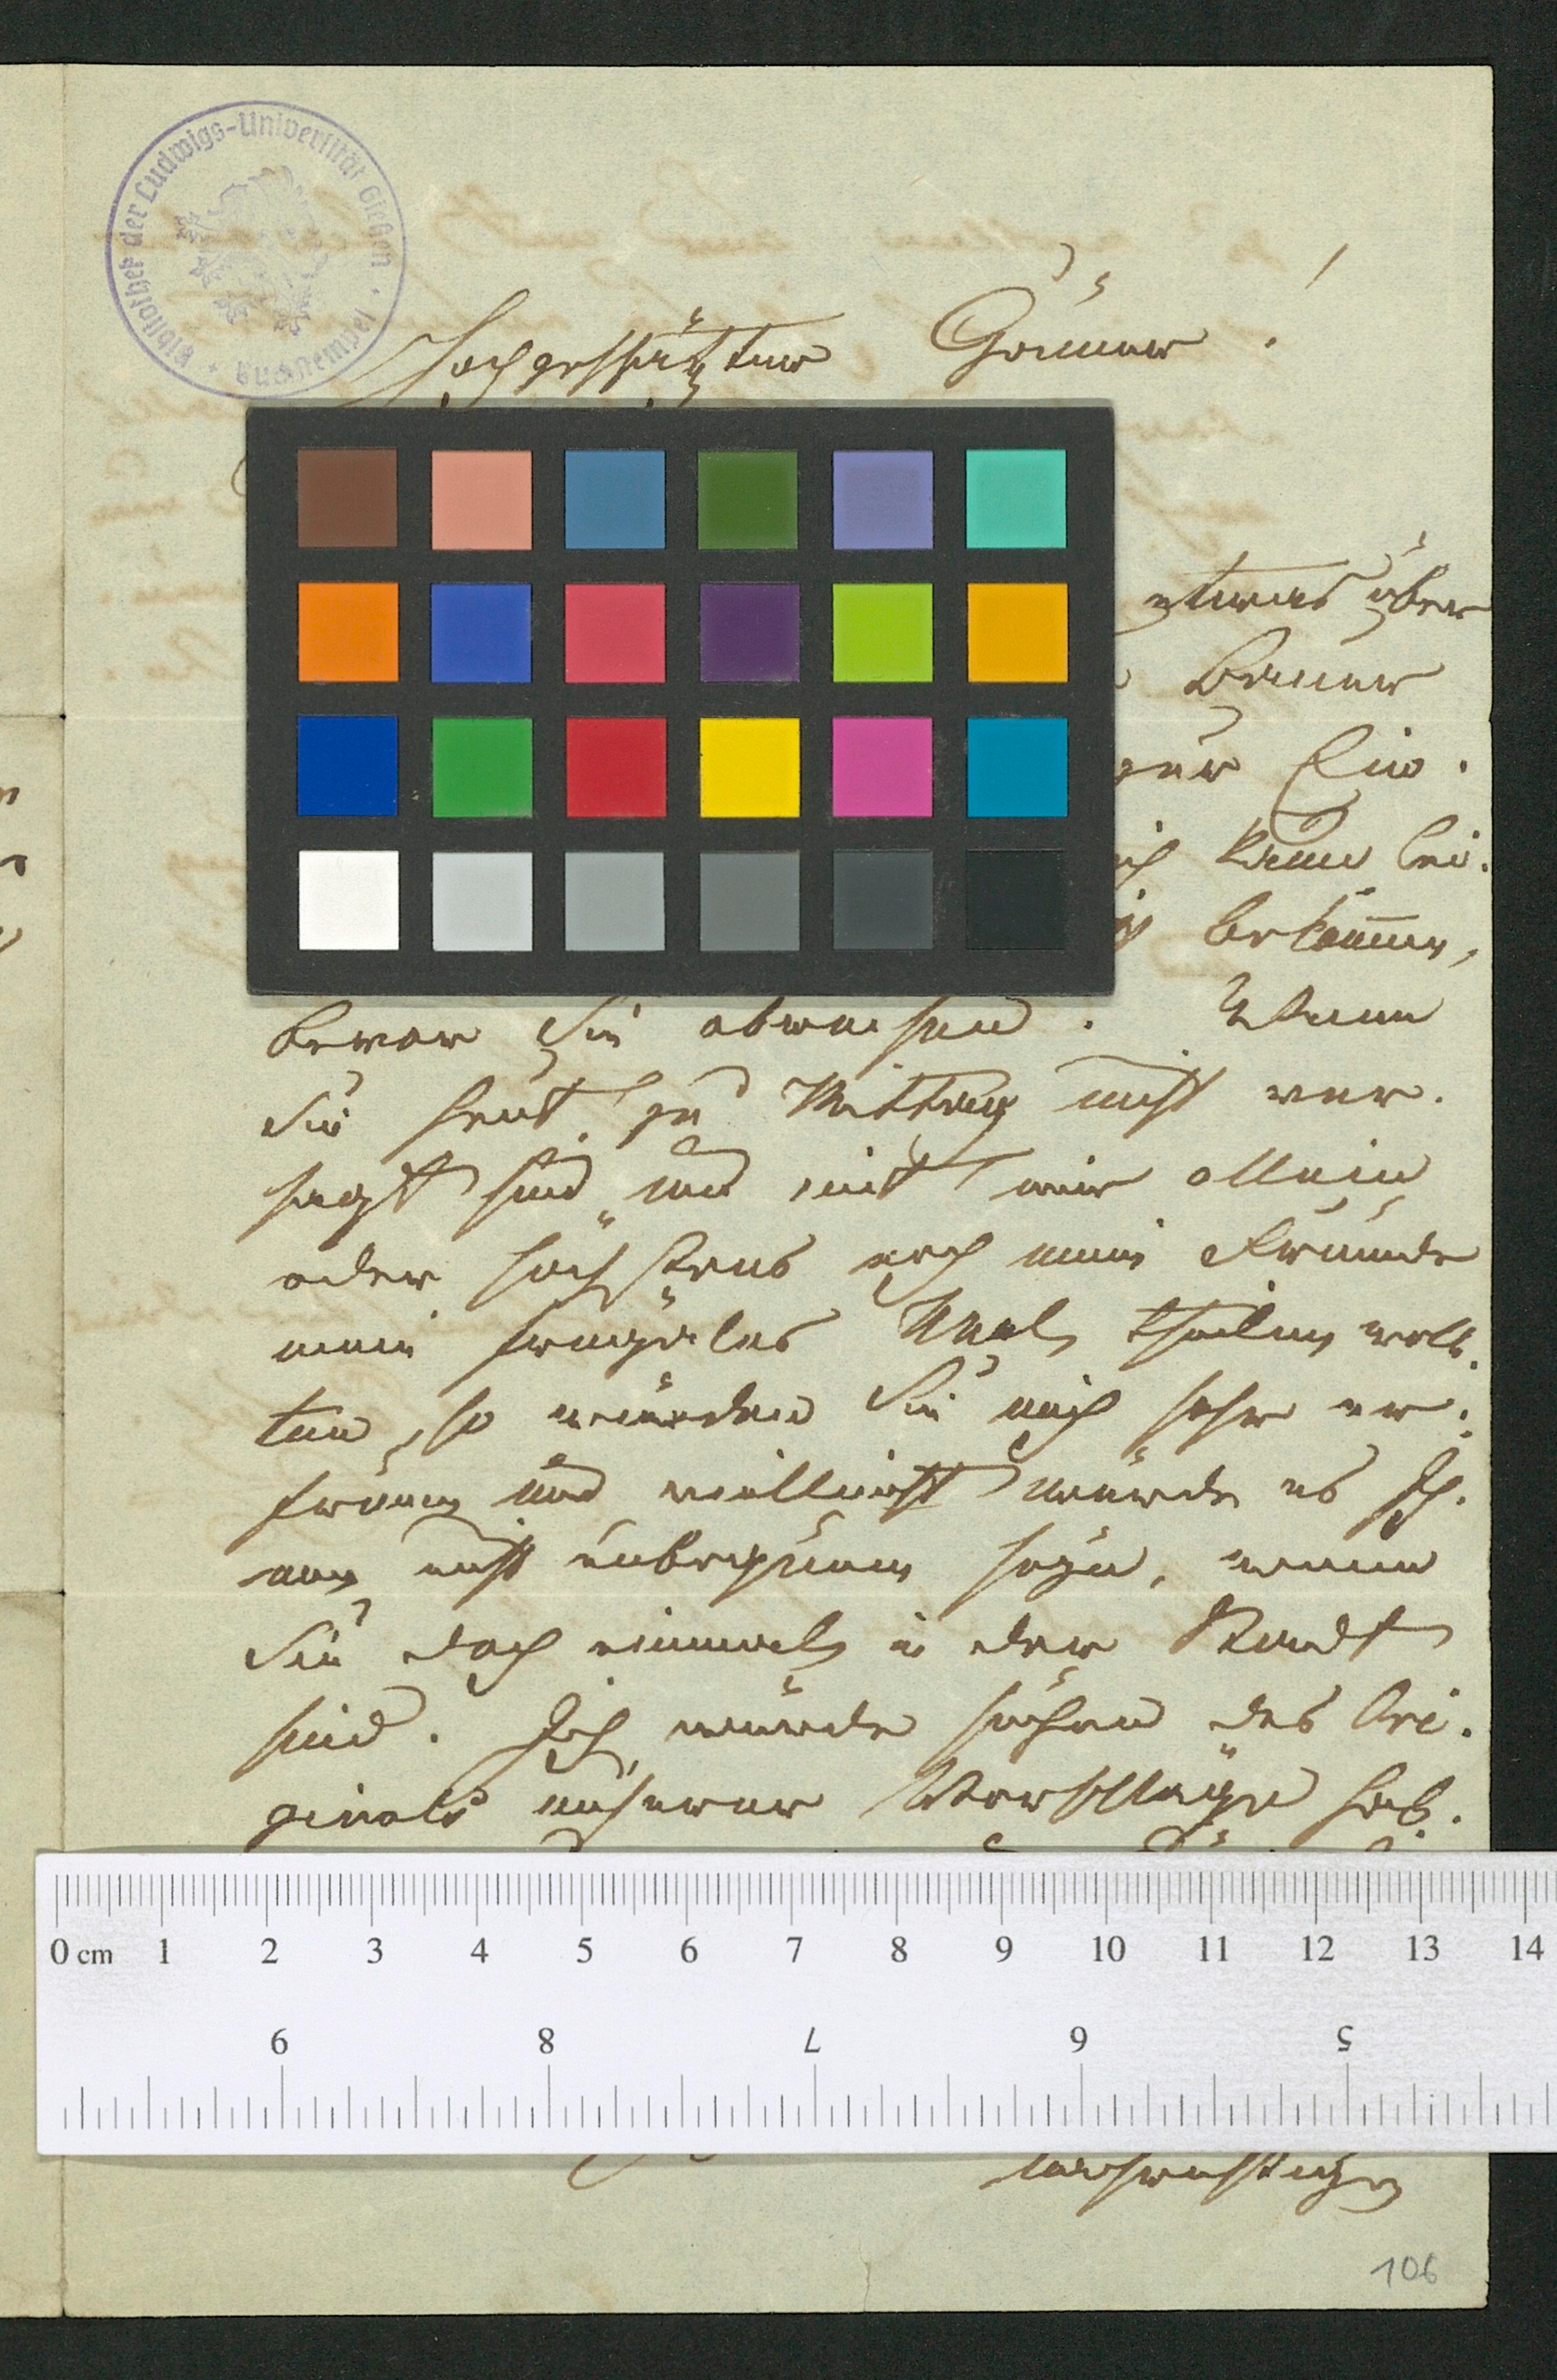 Bibliothek der Ludwigs-Universität Gießen
Buchstempel
Hochgeschätzter Gönner!
etwas über
Ein.
ich kann bei.
bekom̅en,
bevor Sie abreisen. Wenn
Sie heut zu Mittag nicht ver.
sagt sind und mit mir allein
oder höchstens noch mein Freunde
mein frugales Mahl theilen woll.
ten, so würden Sie mich sehr er:
freuen und vielleicht würde es Ih.
nen nicht unbequem seyn, wenn
Sie doch einmal in der Stadt
sind. Ich würde sodann das Ori.
ginal unserer Vorschläge hab.
0 cm 1 2 3 4 5 6 7 8 9 10 11 12 13 14
9 8 7 6 5
106